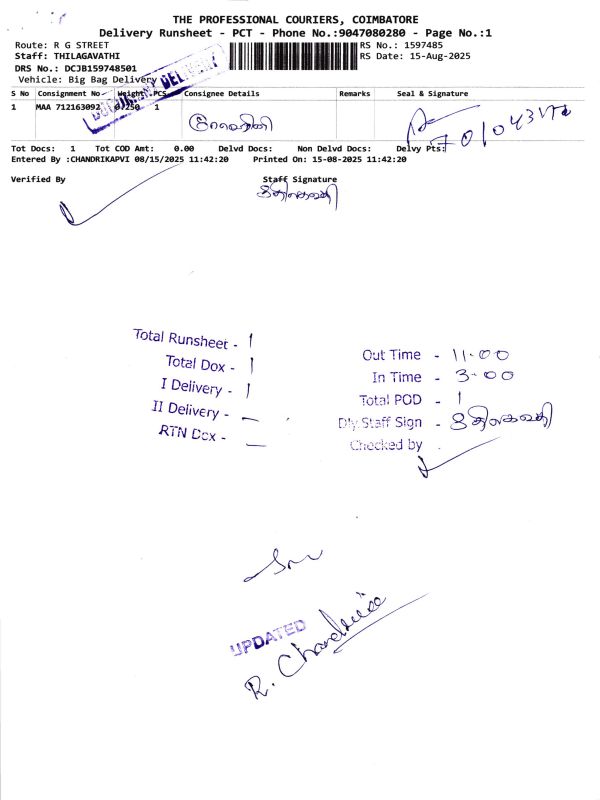 THE PROFESSIONAL COURIERS, COIMBATORE
Delivery Runsheet - PCT - Phone No.:9047080280 - Page No.:1
Route: R G STREET
RS No.: 1597485
Staff: THILAGAVATHI
RS Date: 15-Aug-2025
DRS No.: DCJB159748501
Vehicle: Big Bag Delivery
DELIVERY
S No Consignment No Weight PCS Consignee Details Remarks Seal & Signature
1 MAA 712163092 0.250 1
Tot Docs: 1 Tot COD Amt: 0.00 Delvd Docs: Non Delvd Docs: Delvy Pts:
Entered By :CHANDRIKAPVI 08/15/2025 11:42:20 Printed On: 15-08-2025 11:42:20
Verified By Staff Signature
திலகவதி
Total Runsheet - 1
Total Dox - 1
I Delivery - 1
II Delivery - —
RTN Dox - —
Out Time - 11.00
In Time - 3.00
Total POD - 1
Dly.Staff Sign - திலகவதி
Checked by
UPDATED
R. Chandrika